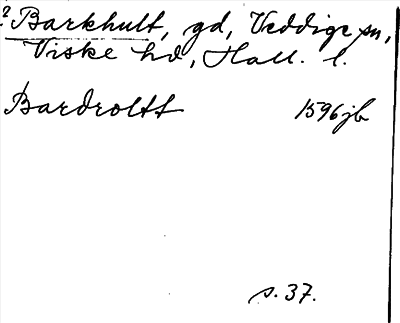 ? Barkhult, gd, Veddige sn,
Viske hd, Hall. l.
Bardroltt 1596 jb
s. 37.